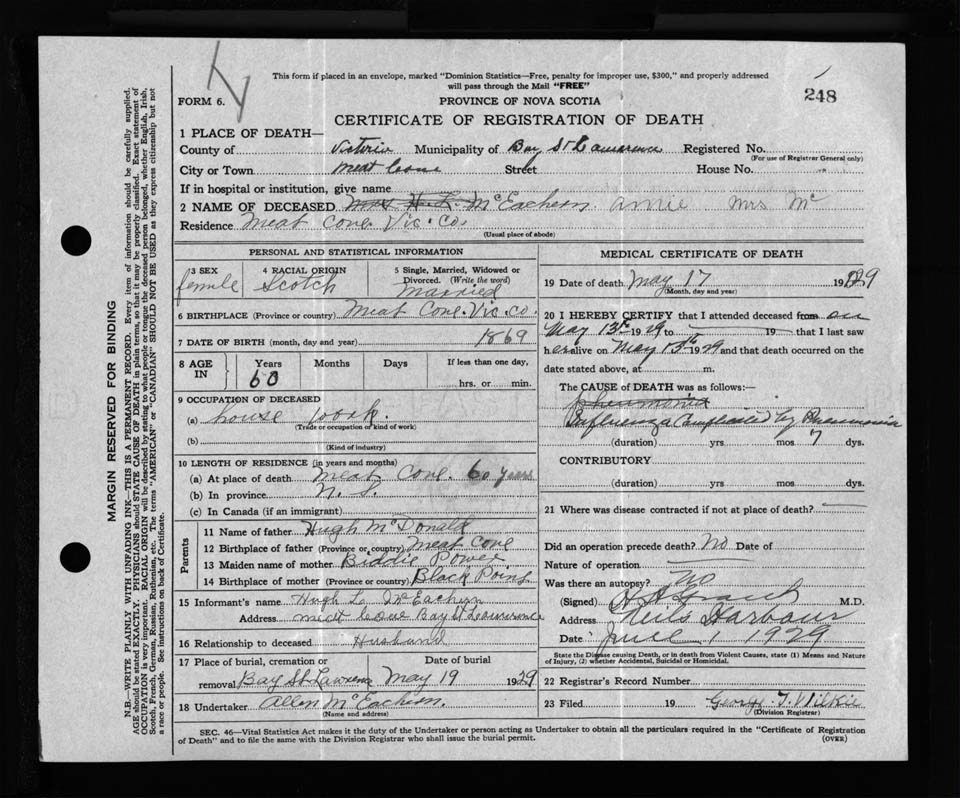 This form if placed in an envelope, marked "Dominion Statistics—Free, penalty for improper use, $300," and properly addressed
will pass through the Mail "FREE"
FORM 6.
PROVINCE OF NOVA SCOTIA
248
CERTIFICATE OF REGISTRATION OF DEATH
1 PLACE OF DEATH—
County of Victoria Municipality of Bay St Lawrence Registered No.
(For use of Registrar General only)
City or Town Meat Cove Street House No.
If in hospital or institution, give name
2 NAME OF DECEASED Mrs H. L. McEachern Annie Mrs Mc
Residence Meat Cove Vic. Co.
(Usual place of abode)
PERSONAL AND STATISTICAL INFORMATION
3 SEX female
4 RACIAL ORIGIN Scotch
5 Single, Married, Widowed or Divorced. (Write the word) Married
6 BIRTHPLACE (Province or country) Meat Cove. Vic. Co.
7 DATE OF BIRTH (month, day and year) 1869
8 AGE IN Years Months Days If less than one day,
60 hrs. or min.
9 OCCUPATION OF DECEASED
(a) house work.
(Trade or occupation or kind of work)
(b)
(Kind of industry)
10 LENGTH OF RESIDENCE (in years and months)
(a) At place of death Meat Cove. 60 years
(b) In province N. S.
(c) In Canada (if an immigrant)
Parents
11 Name of father Hugh McDonald
12 Birthplace of father (Province or country) Meat Cove
13 Maiden name of mother Biddie Power
14 Birthplace of mother (Province or country) Black Point
15 Informant's name Hugh L McEachern
Address Meat Cove Bay St Lawrence
16 Relationship to deceased Husband
17 Place of burial, cremation or removal Bay St. Lawrence Date of burial May 19 1929
18 Undertaker Allen McEachern.
(Name and address)
MEDICAL CERTIFICATE OF DEATH
19 Date of death May 17 1929
(Month, day and year)
20 I HEREBY CERTIFY that I attended deceased from on
May 13th 1929 to — 19 — that I last saw
her alive on May 13th 1929 and that death occurred on the
date stated above, at m.
The CAUSE of DEATH was as follows:—
pneumonia
Influenza Complicated by Pneumonia
(duration) yrs mos 7 dys.
CONTRIBUTORY
(duration) yrs. mos. dys.
21 Where was disease contracted if not at place of death? —
Did an operation precede death? No Date of
Nature of operation —
Was there an autopsy? No
(Signed) M.D.
Address Neils Harbour
Date June 1 1929
State the Disease causing Death, or in death from Violent Causes, state (1) Means and Nature
of Injury, (2) whether Accidental, Suicidal or Homicidal.
22 Registrar's Record Number
23 Filed 19 George T. Wilkie
(Division Registrar)
SEC. 46—Vital Statistics Act makes it the duty of the Undertaker or person acting as Undertaker to obtain all the particulars required in the "Certificate of Registration
of Death" and to file the same with the Division Registrar who shall issue the burial permit.
(OVER)
MARGIN RESERVED FOR BINDING
N.B.—WRITE PLAINLY WITH UNFADING INK—THIS IS A PERMANENT RECORD. Every item of information should be carefully supplied.
AGE should be stated EXACTLY. PHYSICIANS should STATE CAUSE OF DEATH in plain terms, so that it may be properly classified. Exact statement of
OCCUPATION is very important. RACIAL ORIGIN will be described by stating to what people or tongue the deceased person belonged, whether English, Irish,
Scotch, French, German, Russian, Ruthenian, etc. The terms "AMERICAN" or "CANADIAN" SHOULD NOT BE USED as they express citizenship but not
a race or people. See instructions on back of Certificate